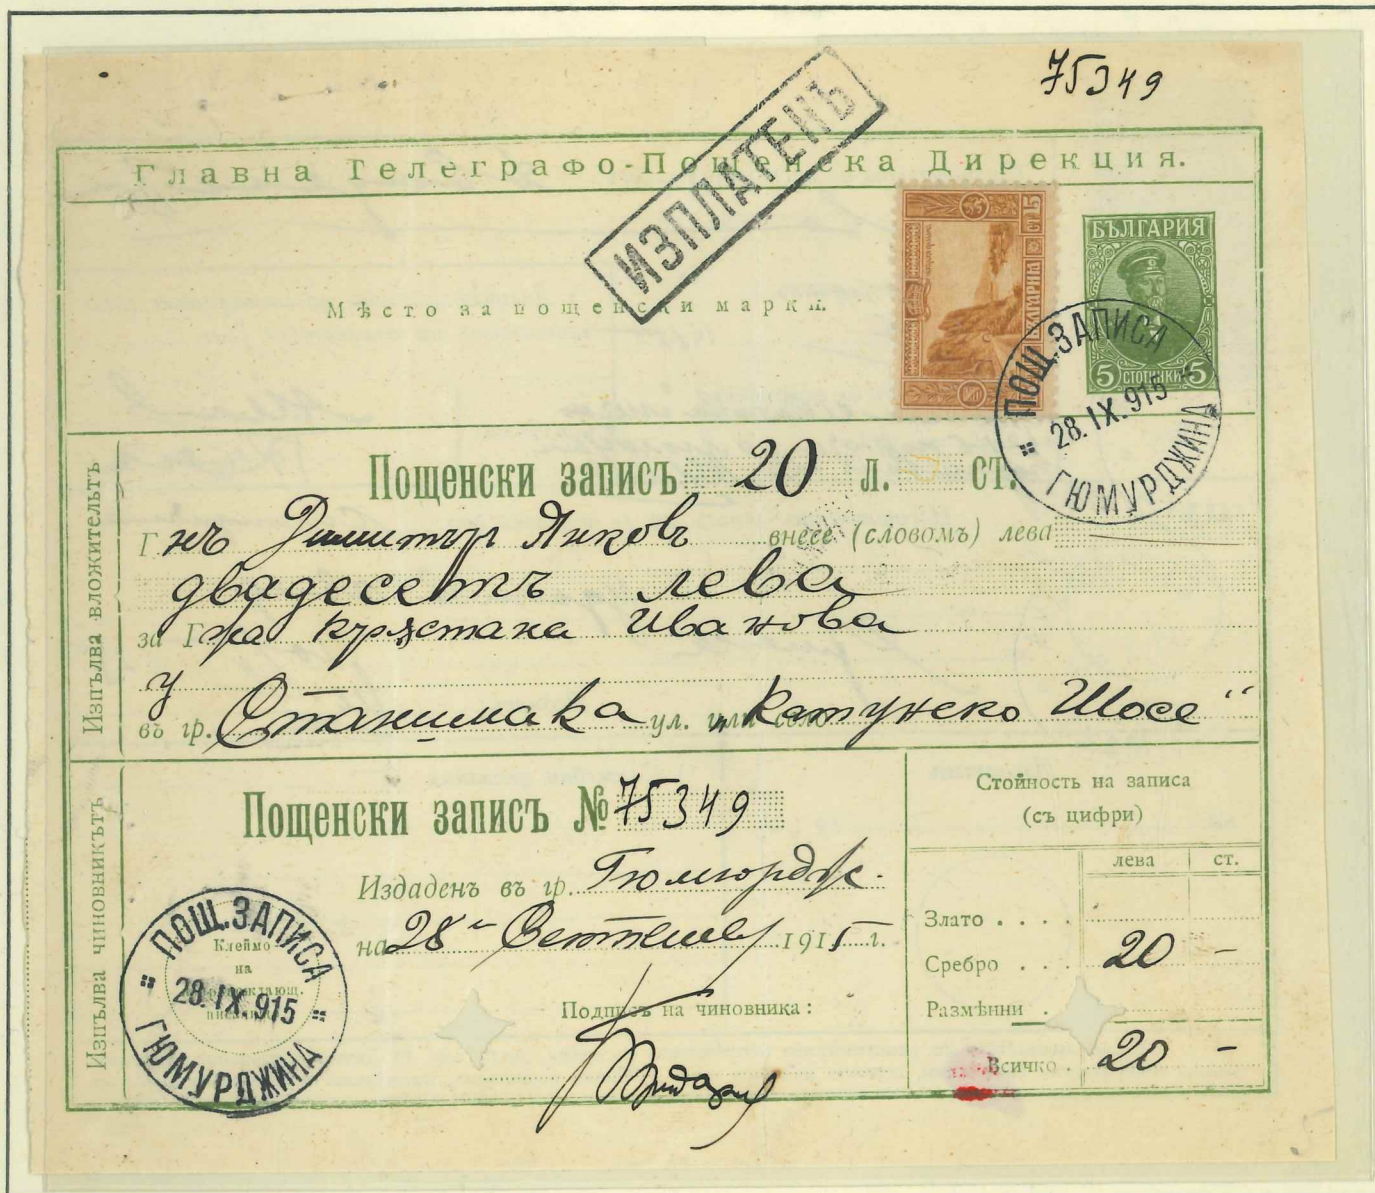 75349
Главна Телеграфо-Пощенска Дирекция.
ИЗПЛАТЕНЪ
СТ 15
БЪЛГАРИЯ
БЪЛГАРИЯ
5 СТОТИНКИ 5
Мѣсто за пощенски марки.
ПОЩ.ЗАПИСА
28.IX.915
ГЮМУРДЖИНА
Изпълва вложительтъ
Пощенски записъ 20 л. СТ.
Г нъ Димитър Янковъ внесе (словомъ) лева
двадесетъ лева
за Г жа Кръстана Иванова
у
въ гр. Станимака ул. или село „Катунско Шосе“
Изпълва чиновникътъ
Пощенски записъ № 75349
Издаденъ въ гр. Гюмюрдж.
на 28 Септемвр 1915 г.
Подписъ на чиновника:
ПОЩ.ЗАПИСА
Клеймо
на
28.IX.915
ГЮМУРДЖИНА
Стойность на записа
(съ цифри)
лева ст.
Злато . . . .
Сребро . . . 20 -
Размѣнни .
Всичко . 20 -